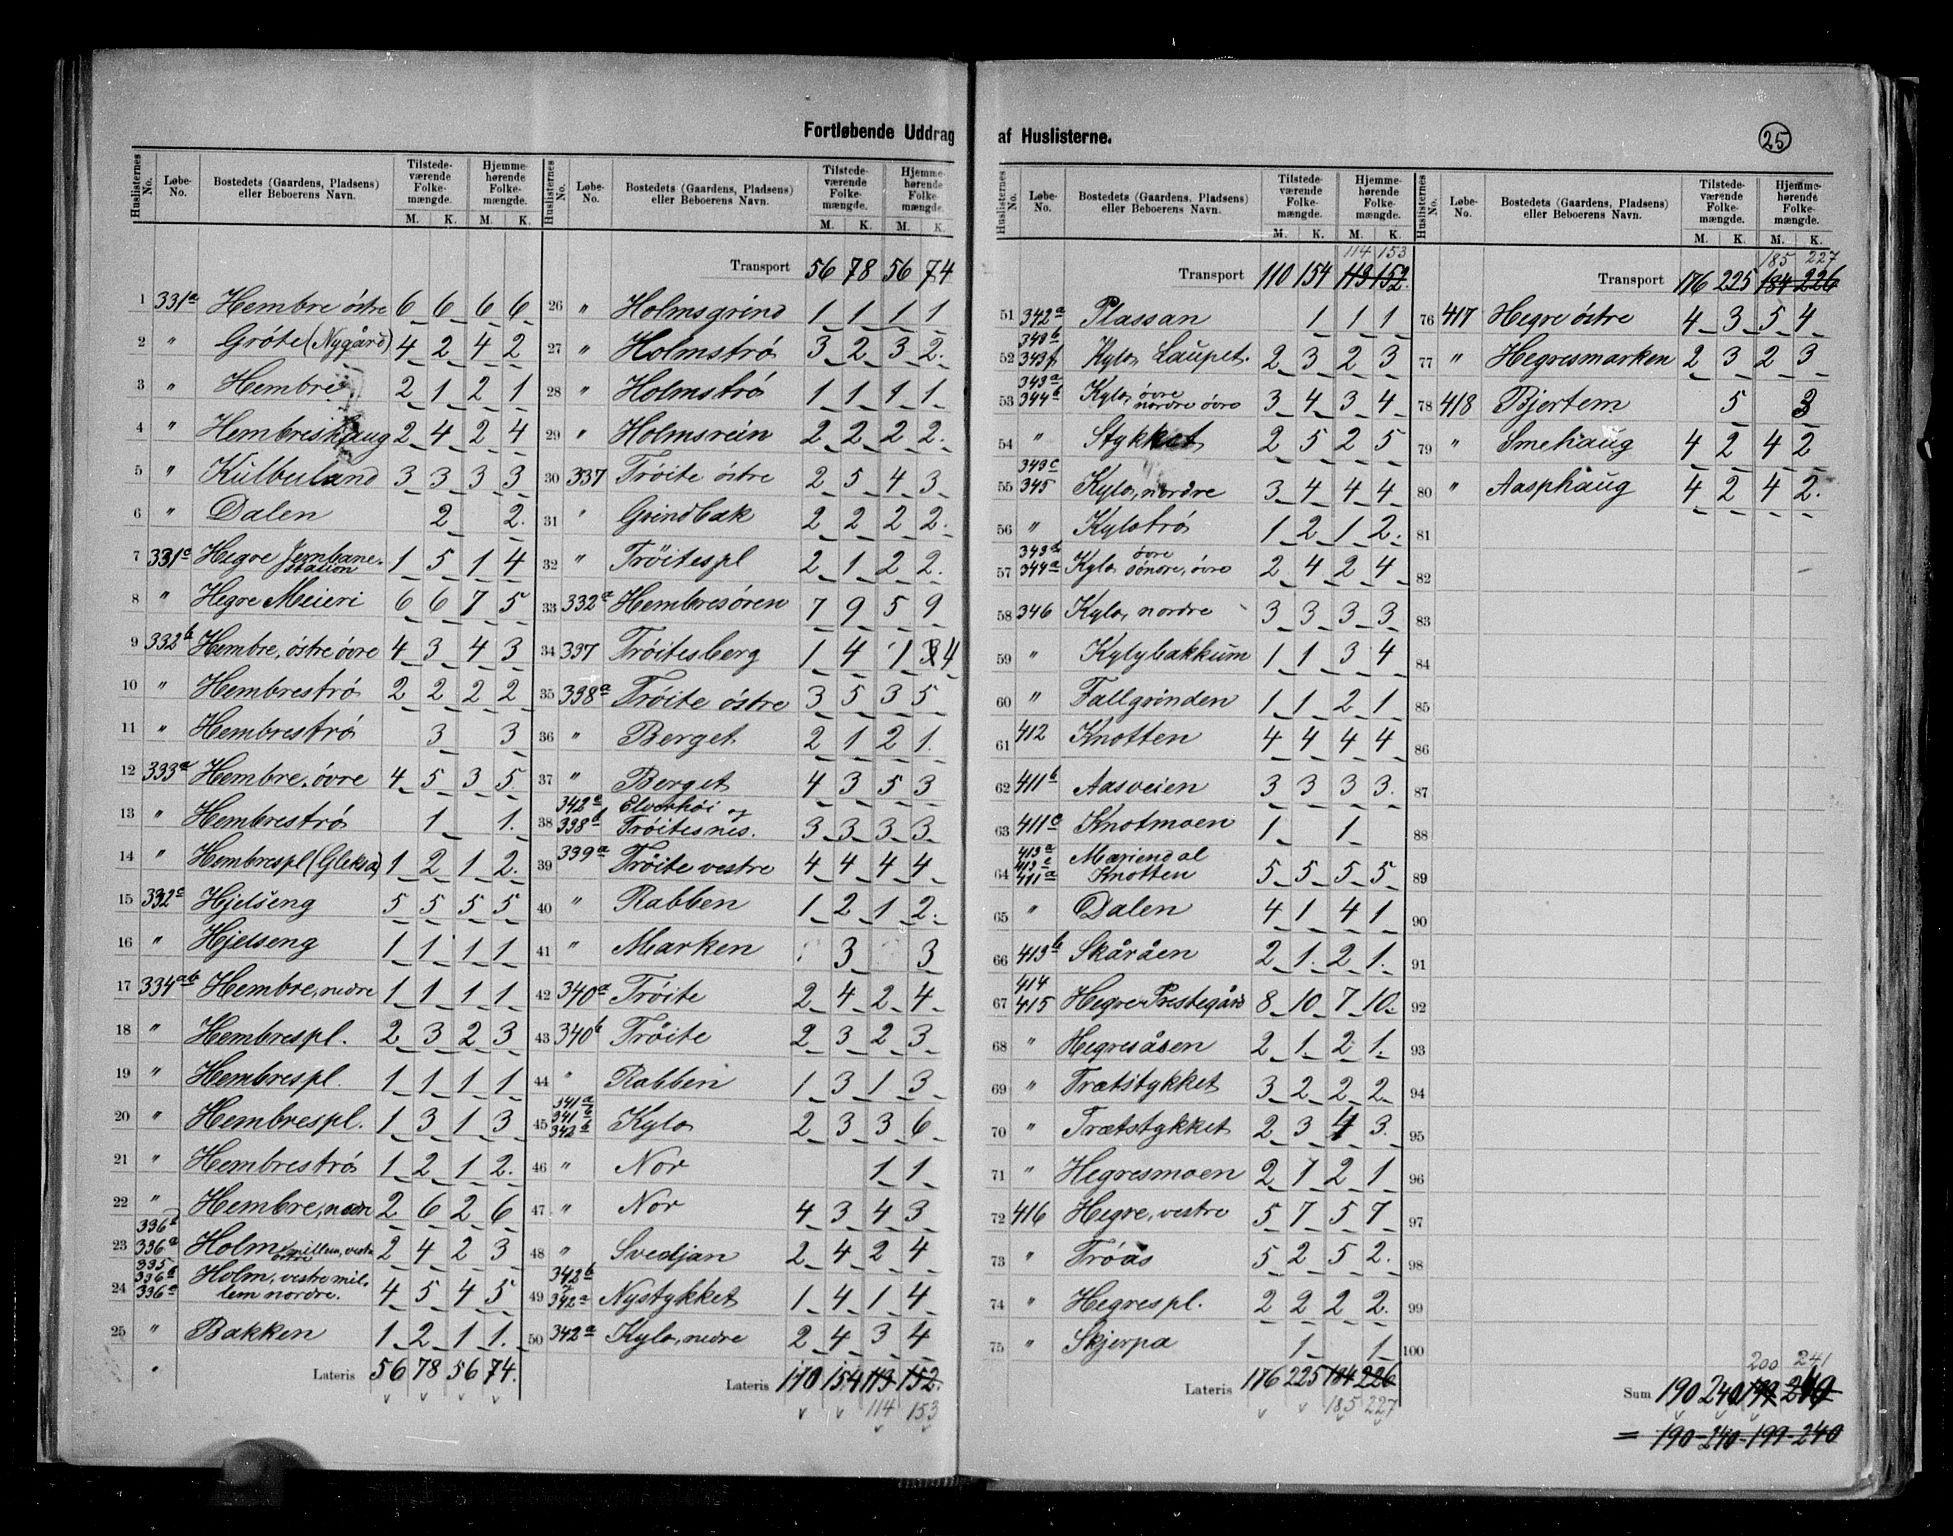 Fortløbende Uddrag af Huslisterne.
25
Huslisternes No. | Løbe-No. | Bostedets (Gaardens, Pladsens) eller Beboerens Navn. | Tilstedeværende Folkemængde. M. K. | Hjemmehørende Folkemængde. M. K.
1 331a Hembre östre 6 6 6 6
2 " Gröte (Nygård) 4 2 4 2
3 " Hembre 2 1 2 1
4 " Hembreshaug 2 4 2 4
5 " Kulbuland 3 3 3 3
6 " Dalen 2 2.
7 331c Hegre Jernbanestation 1 5 1 4
8 " Hegre Meieri 6 6 7 5
9 332b Hembre, östre övre 4 3 4 3
10 " Hembreströ 2 2 2 2
11 " Hembreströ 3 3
12 333a Hembre, övre 4 5 3 5
13 " Hembreströ 1 1.
14 " Hembrespl (Gleksa) 1 2 1 2.
15 332c Hjelseng 5 5 5 5
16 " Hjelseng 1 1 1 1
17 334ab Hembre, nedre 1 1 1 1
18 " Hembrespl. 2 3 2 3
19 " Hembrespl. 1 1 1 1
20 " Hembrespl. 1 3 1 3
21 " Hembreströ 1 2 1 2.
22 " Hembre, nedre 2 6 2 6
23 336d 336a Holm millem, vestre östre 2 4 2 3
24 335 336b 336a Holm, vestre millem nordre. 4 5 4 5
25 " Bakken 1 2 1 1.
Lateris 56 78 56 74.
Transport 56 78 56 74
26 " Holmsgrind 1 1 1 1
27 " Holmströ 3 2 3 2.
28 " Holmströ 1 1 1 1
29 " Holmsvein 2 2 2 2.
30 337 Tröite östre 2 5 4 3
31 " Grindbak 2 2 2 2.
32 " Tröitespl 2 1 2 2.
33 332a Hembresören 7 9 5 9
34 337 Tröitesberg 1 4 1 3 4
35 338a Tröite östre 3 5 3 5
36 " Berget 2 1 2 1.
37 " Berget 4 3 5 3
38 342c 338b Elverhöi og Tröitesnes. 3 3 3 3
39 339a Tröite vestre 4 4 4 4
40 " Rabben 1 2 1 2.
41 " Marken 3 3
42 340a Tröite 2 4 2 4
43 340b Tröite 2 3 2 3
44 " Rabben 1 3 1 3
45 341a 341b 342b Kylo 2 3 3 6
46 " Nor 1 1
47 " Nor 4 3 4 3
48 " Svedjan 2 4 2 4
49 342b 342a Nystykket 1 4 1 4
50 342a Kylo, nedre 2 4 3 4
Lateris 110 154 113 152.
114 153
114 153
Transport 110 154 113 152.
51 342a Plassan 1 1 1
52 343b 343f Kylo Laupet. 2 3 2 3
53 343a 344b Kylo, övre nordre övre 3 4 3 4
54 " Stykket 2 5 2 5
55 343c 345 Kylo, nordre 3 4 4 4
56 " Kyloströ 1 2 1 2.
57 343b 344a Kylo övre söndre, övre 2 4 2 4
58 346 Kylo, nordre 3 3 3 3
59 " Kylybakkum 1 1 3 4
60 " Fallgrinden 1 1 2 1
61 412 Knotten 4 4 4 4
62 411b Aasveien 3 3 3 3.
63 411c Knotmoen 1 1
64 413a 413c 411a Mariendal Knotten 5 5 5 5
65 " Dalen 4 1 4 1
66 413b Skåråen 2 1. 2 1.
67 414 415 Hegre Prestegård 8 10 7 10
68 " Hegresåsen 2 1 2 1.
69 " Trætstykket 3 2 2 2
70 " Trætstykket 2 3 4 3.
71 " Hegresmoen 2 1 2 1
72 416 Hegre, vestre 5 7 5 7
73 " Tröås 5 2 5 2.
74 " Hegrespl. 2 2 2 2.
75 " Skjerpa 1 1
Lateris 176 225 184 226
185 227
185 227
Transport 176 225 184 226
76 417 Hegre östre 4 3 5 4
77 " Hegresmarken 2 3 2 3
78 418 Bjertem 5 3
79 " Smehaug 4 2 4 2
80 " Aasphaug 4 2 4 2.
81
82
83
84
85
86
87
88
89
90
91
92
93
94
95
96
97
98
99
100
200 241
Sum 190 240 199 240
= 190 - 240 - 199 - 240